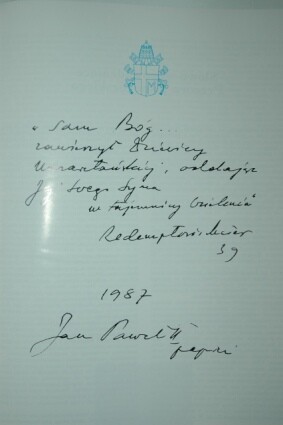 „Sam Bóg...
zawierzył Dziewicy
Nazaretańskiej, oddając
Jej swego Syna
w tajemnicy Wcielenia"
Redemptoris Mater
39
1987
Jan Paweł II
papież